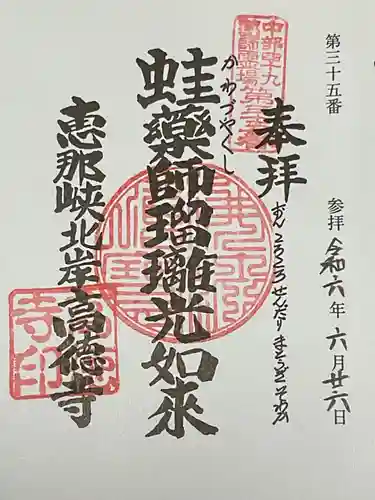 第三十五番
参拝 令和六年六月廿六日
奉拝
おんころころせんだりまとうぎそわか
中部四十九
薬師霊場第三十五番
かわづやくし
蛙藥師瑠璃光如來
恵那峡北岸高徳寺
寺印